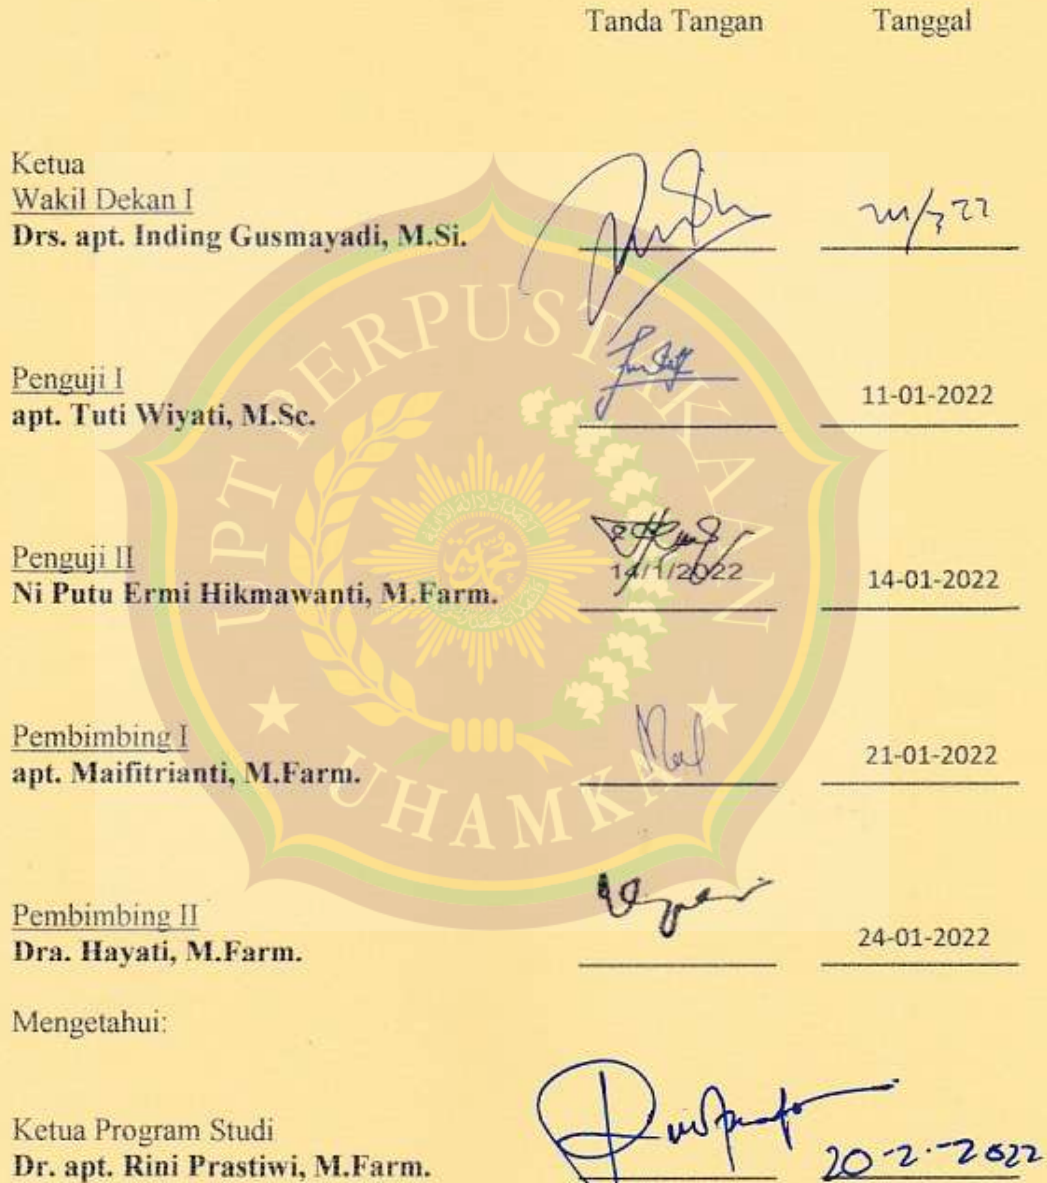 Tanda Tangan Tanggal
Ketua
Wakil Dekan I
Drs. apt. Inding Gusmayadi, M.Si.
Penguji I
apt. Tuti Wiyati, M.Sc.
11-01-2022
Penguji II
Ni Putu Ermi Hikmawanti, M.Farm.
14/1/2022
14-01-2022
Pembimbing I
apt. Maifitrianti, M.Farm.
21-01-2022
Pembimbing II
Dra. Hayati, M.Farm.
24-01-2022
Mengetahui:
Ketua Program Studi
Dr. apt. Rini Prastiwi, M.Farm.
20-2-2022
UPT PERPUSTAKAAN
UHAMKA